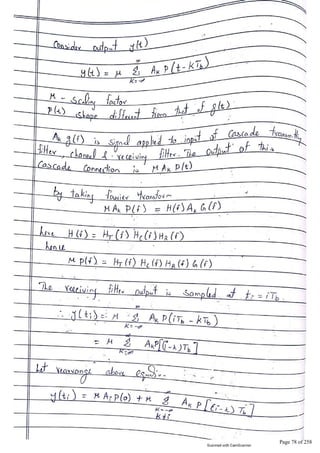 Consider output y(t)
∞
y(t) = μ Σ Ak P(t-kTb)
K=-∞
μ - Scaling factor
P(t) shape different from that of g(t)
As g(t) is signal applied to input of Cascade transmitting
filter, channel & receiving filter. The output of this
Cascade Connection is μ Ak P(t)
by taking fourier transform
μ Ak P(f) = H(f) Ak G(f)
here H(f) = HT(f) Hc(f) HR(f)
hence
μ P(f) = HT(f) Hc(f) HR(f) G(f)
The receiving filter output is sampled at ti = iTb
∞
∴ y(ti) = μ Σ Ak P(iTb - kTb)
K=-∞
∞
= μ Σ Ak P[(i-k)Tb]
K=-∞
let rearrange above eqn
∞
y(ti) = μ Ai P(0) + μ Σ Ak P[(i-k)Tb]
K=-∞
K≠i
Scanned with CamScanner
Page 78 of 258